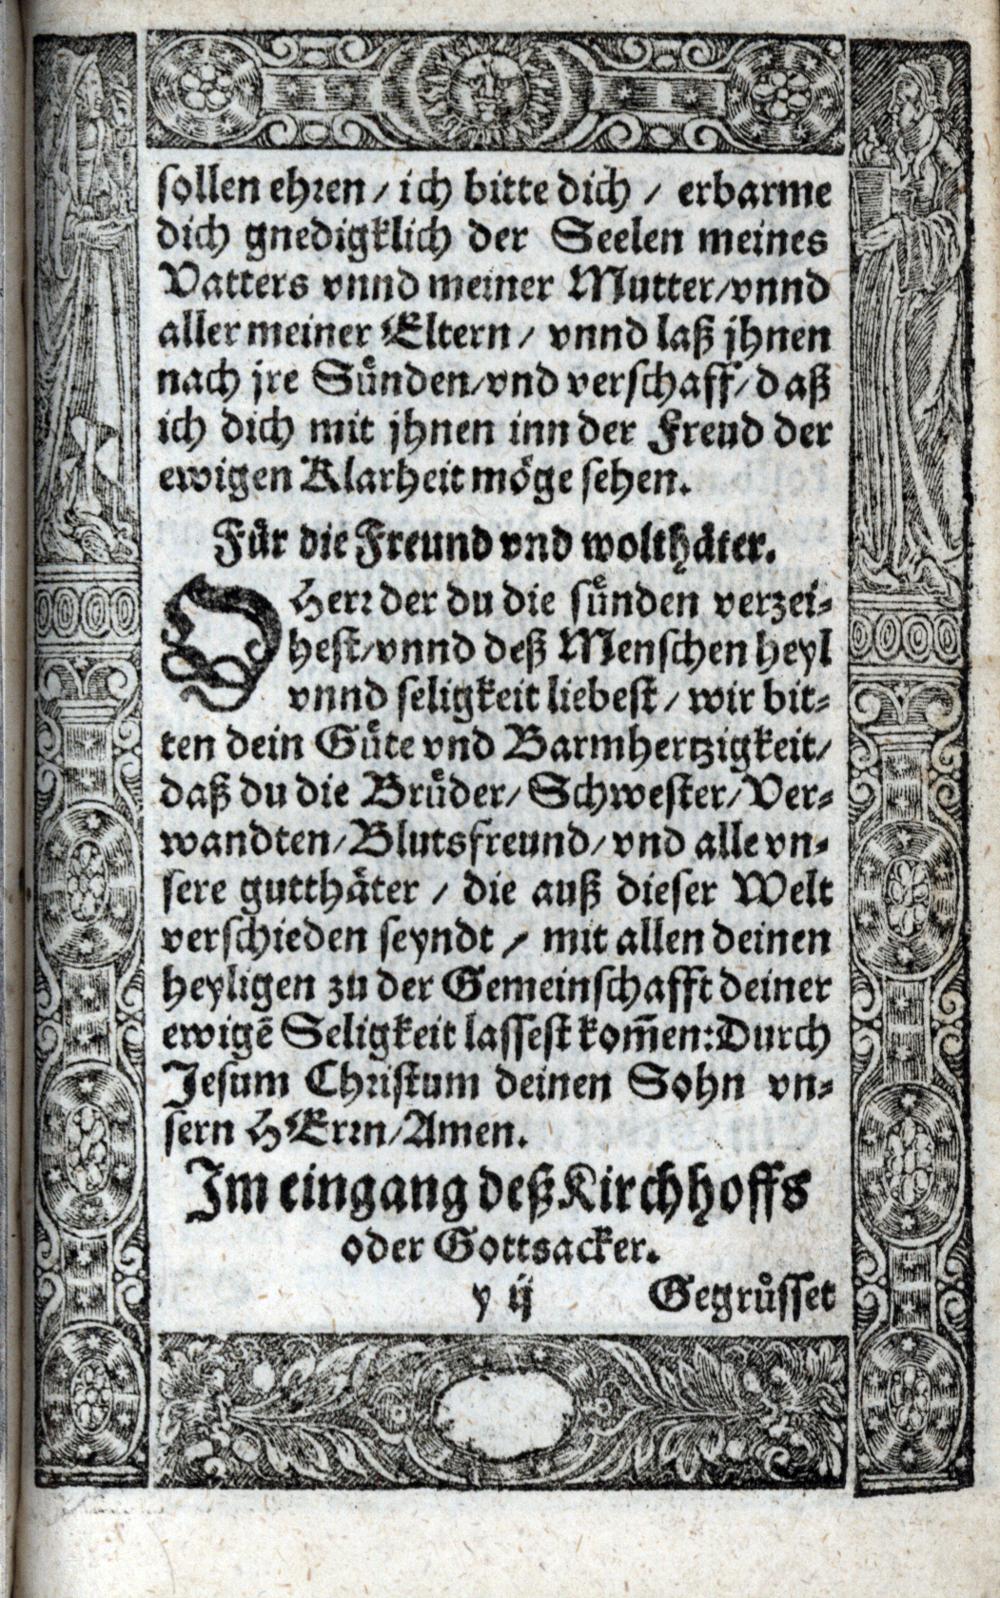 sollen ehren / ich bitte dich / erbarme
dich gnedigklich der Seelen meines
Vatters vnnd meiner Mutter/vnnd
aller meiner Eltern / vnnd laß jhnen
nach jre Suͤnden/vnd verschaff/daß
ich dich mit jhnen inn der Freud der
ewigen Klarheit moͤge sehen.
Fuͤr die Freund vnd wolthaͤter.
O Herr der du die suͤnden verzei-
hest/vnnd deß Menschen heyl
vnnd seligkeit liebest / wir bit-
ten dein Guͤte vnd Barmhertzigkeit/
daß du die Bruͤder/Schwester/Ver-
wandten/Blutsfreund/vnd alle vn-
sere gutthaͤter / die auß dieser Welt
verschieden seyndt / mit allen deinen
heyligen zu der Gemeinschafft deiner
ewigẽ Seligkeit lassest kom̃en: Durch
Jesum Christum deinen Sohn vn-
sern HErrn/Amen.
Im eingang deß Kirchhoffs
oder Gottsacker.
y ij Gegruͤsset